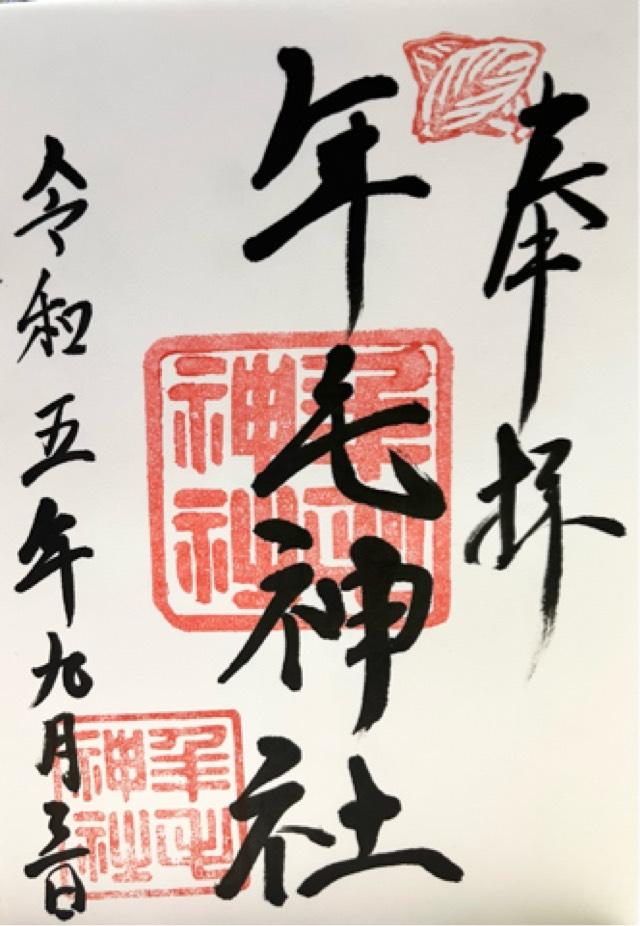 奉拝
年毛神社
令和五年九月三日
年毛神社
年毛神社